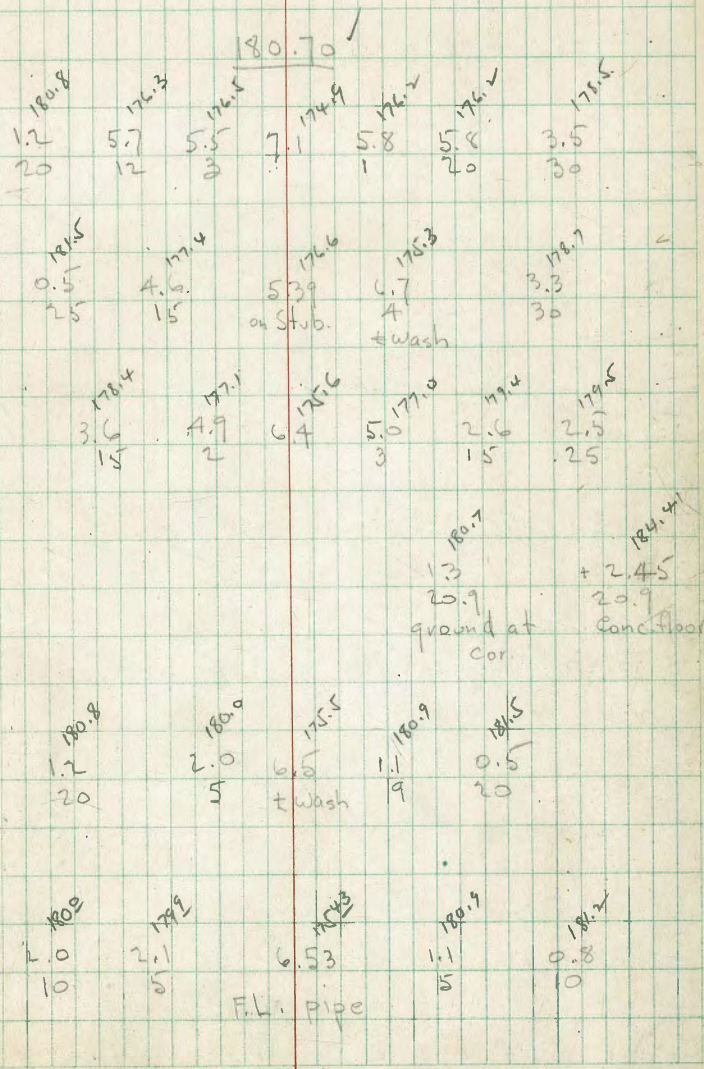 180.70 ✓
180.8 176.3 176.5 174.9 176.2 176.2 178.5
1.2 5.7 5.5 7.1 5.8 5.8 3.5
20 12 3 1 20 30
181.5 177.4 176.6 175.3 178.7
0.5 4.6 5.39 6.7 3.3
25 15 on Stub. 4 30
℄ Wash
178.4 177.1 175.6 177.0 179.4 179.5
3.6 4.9 6.4 5.0 2.6 2.5
15 2 3 15 25
180.7 184.41
1.3 + 2.45
20.9 20.9
ground at Conc. floor
cor.
180.8 180.0 175.5 180.9 181.5
1.2 2.0 6.5 1.1 0.5
20 5 ℄ Wash 19 20
180.0 179.9 175.43 180.9 181.2
2.0 2.1 6.53 1.1 0.8
10 5 5 10
F.L. pipe